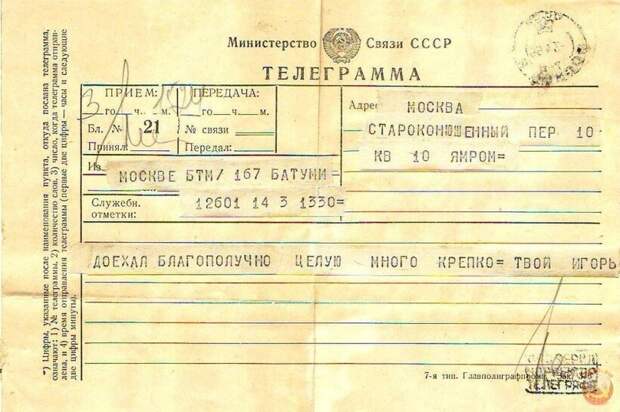 Министерство Связи СССР
ТЕЛЕГРАММА
ПРИЕМ:
ПЕРЕДАЧА:
го час. м.
го час. м.
Бл. № 21
№ связи
Принял:
Передал:
Адрес
МОСКВА
СТАРОКОНЮШЕННЫЙ ПЕР 10-
КВ 10 ЯМРОМ=
Из
МОСКВЕ БТМ/ 167 БАТУМИ=
Служебн.
отметки:
12601 14 3 1330=
ДОЕХАЛ БЛАГОПОЛУЧНО ЦЕЛУЮ МНОГО КРЕПКО= ТВОЙ ИГОРЬ
*) Цифры, указанные после наименования пункта, откуда послана телеграмма,
означают: 1) № телеграммы, 2) количество слов, 3) число, когда телеграмма отправ-
лена, и 4) время отправления телеграммы (первые две цифры — часы и следующие
две цифры минуты).
7-я тип. Главполиграфпрома
ТЕЛЕГРАФ